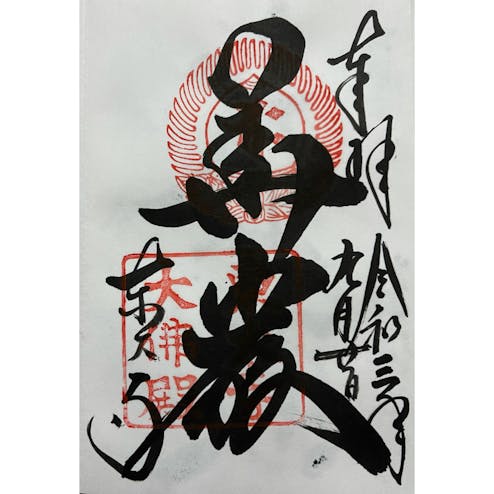 奉拝
令和三年
九月廿日
華厳
東大寺
大佛殿